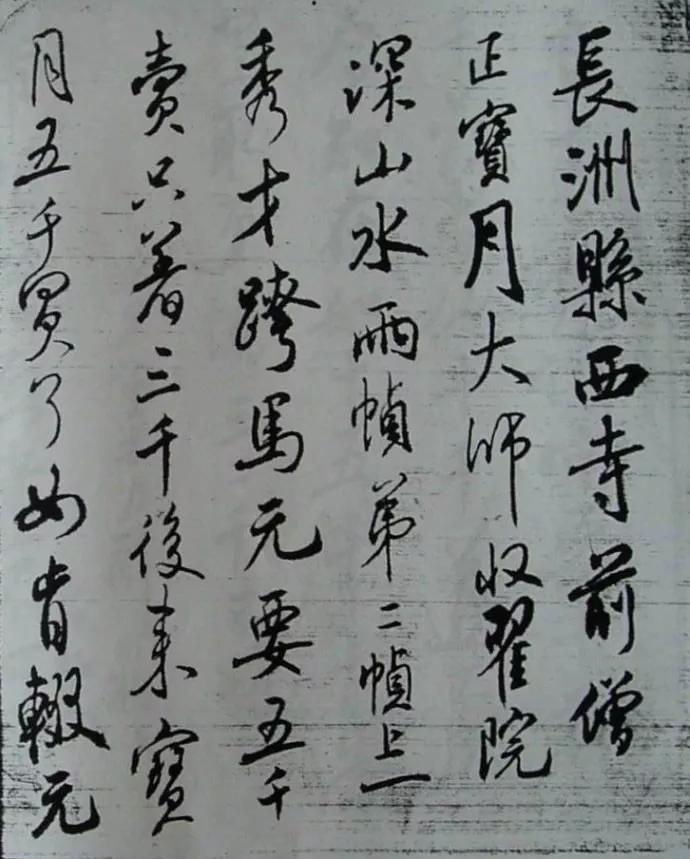 長洲縣西寺前僧
正寶月大師收翟院
深山水兩幀第二幀上一
秀才跨馬元要五千
賣只著三千後来寶
月五千買了如肯輟元